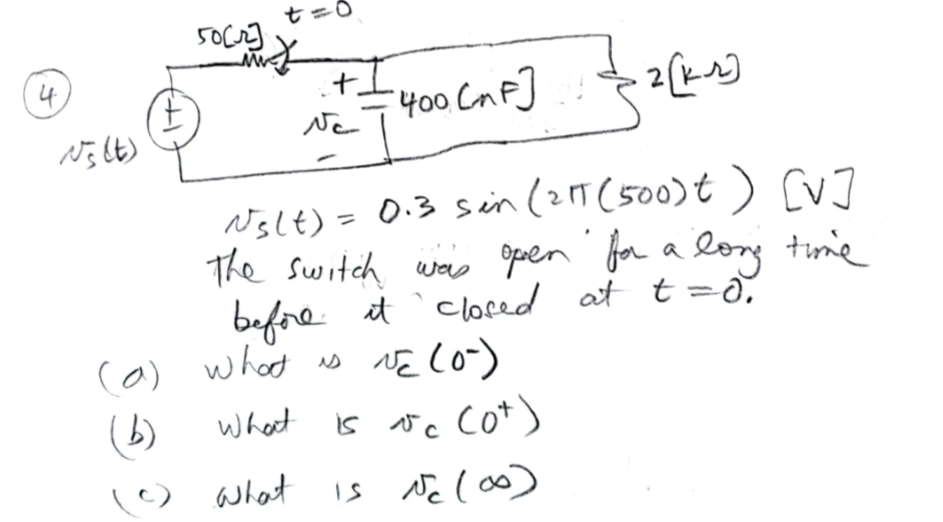 t=0
50[Ω]
4
+
400 [nF]
2[kΩ]
+
vc
-
vs(t)
vs(t) = 0.3 sin(2π(500)t) [V]
The switch was open for a long time
before it closed at t=0.
(a) what is vc(0-)
(b) what is vc(0+)
(c) what is vc(∞)